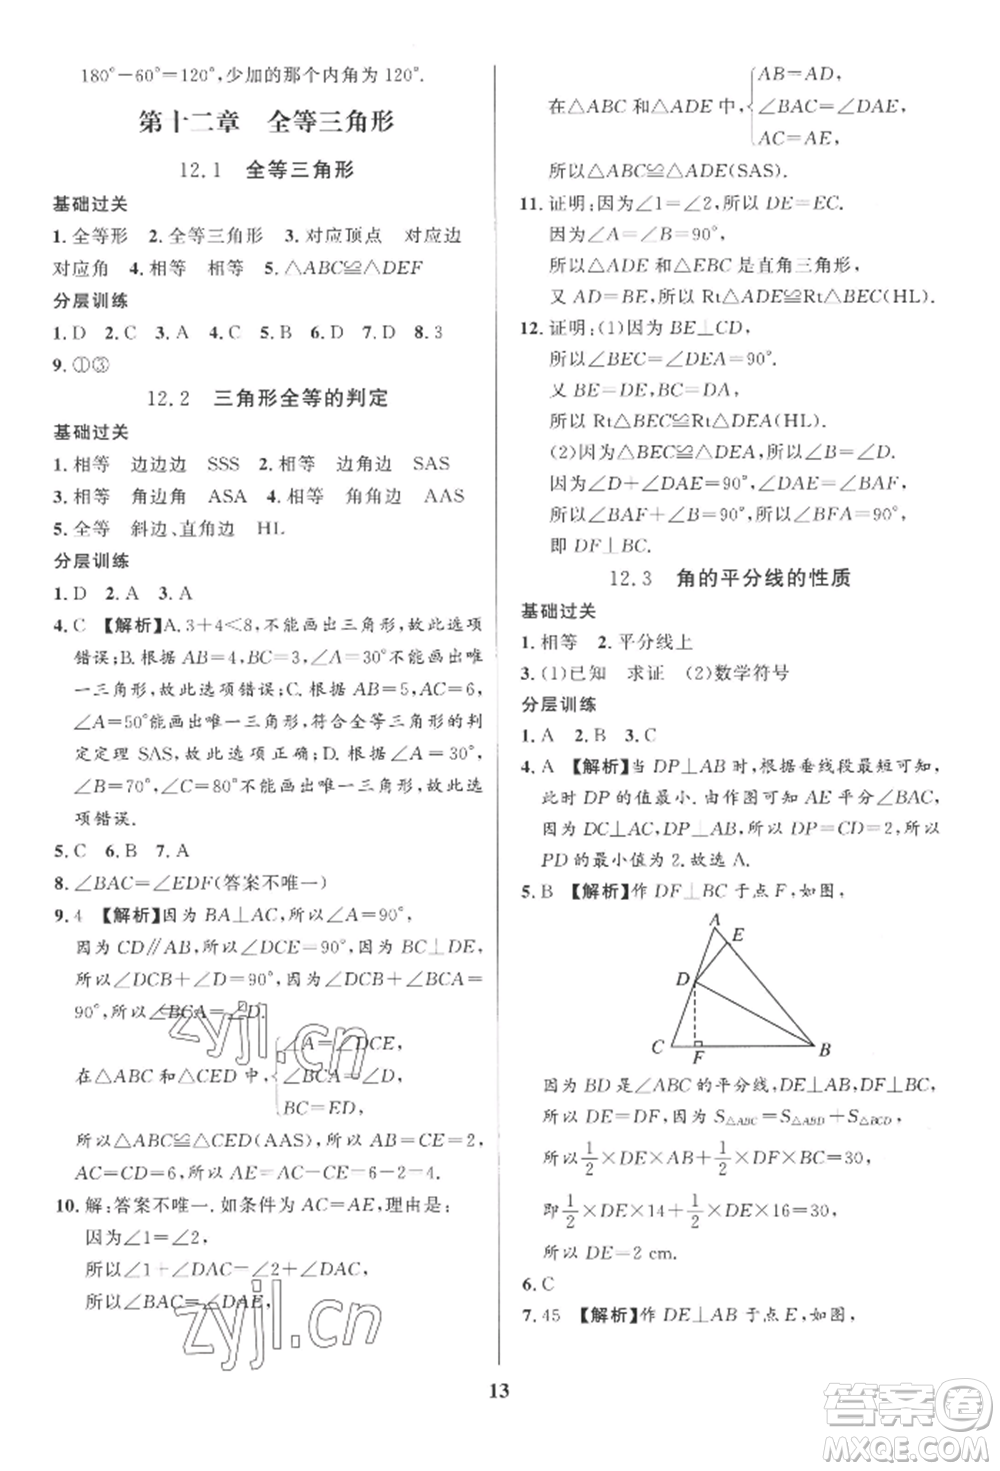 180°－60°＝120°,少加的那个内角为 120°.
第十二章　全等三角形
12.1　全等三角形
基础过关
1.全等形　2.全等三角形　3.对应顶点　对应边
对应角　4.相等　相等　5.△ABC≌△DEF
分层训练
1.D　2.C　3.A　4.C　5.B　6.D　7.D　8.3
9.①③
12.2　三角形全等的判定
基础过关
1.相等　边边边　SSS　2.相等　边角边　SAS
3.相等　角边角　ASA　4.相等　角角边　AAS
5.全等　斜边、直角边　HL
分层训练
1.D　2.A　3.A
4.C　【解析】A.3＋4＜8,不能画出三角形,故此选项
错误;B.根据 AB＝4,BC＝3,∠A＝30°不能画出唯
一三角形,故此选项错误;C.根据 AB＝5,AC＝6,
∠A＝50°能画出唯一三角形,符合全等三角形的判
定定理 SAS,故此选项正确;D.根据∠A＝30°,
∠B＝70°,∠C＝80°不能画出唯一三角形,故此选
项错误.
5.C　6.B　7.A
8.∠BAC＝∠EDF(答案不唯一)
9.4　【解析】因为 BA⊥AC,所以∠A＝90°,
因为 CD∥AB,所以∠DCE＝90°,因为 BC⊥DE,
所以∠DCB＋∠D＝90°,因为∠DCB＋∠BCA＝
90°,所以∠BCA＝∠D.
在△ABC 和△CED 中,
∠A＝∠DCE,
∠BCA＝∠D,
BC＝ED,
所以△ABC≌△CED(AAS),所以 AB＝CE＝2,
AC＝CD＝6,所以 AE＝AC－CE＝6－2＝4.
10.解:答案不唯一.如条件为 AC＝AE,理由是:
因为∠1＝∠2,
所以∠1＋∠DAC＝∠2＋∠DAC,
所以∠BAC＝∠DAE,
在△ABC 和△ADE 中,
AB＝AD,
∠BAC＝∠DAE,
AC＝AE,
所以△ABC≌△ADE(SAS).
11.证明:因为∠1＝∠2,所以 DE＝EC.
因为∠A＝∠B＝90°,
所以△ADE 和△EBC 是直角三角形,
又 AD＝BE,所以 Rt△ADE≌Rt△BEC(HL).
12.证明:(1)因为 BE⊥CD,
所以∠BEC＝∠DEA＝90°.
又 BE＝DE,BC＝DA,
所以 Rt△BEC≌Rt△DEA(HL).
(2)因为△BEC≌△DEA,所以∠B＝∠D.
因为∠D＋∠DAE＝90°,∠DAE＝∠BAF,
所以∠BAF＋∠B＝90°,所以∠BFA＝90°,
即 DF⊥BC.
12.3　角的平分线的性质
基础过关
1.相等　2.平分线上
3.(1)已知　求证　(2)数学符号
分层训练
1.A　2.B　3.C
4.A　【解析】当 DP⊥AB 时,根据垂线段最短可知,
此时 DP 的值最小.由作图可知 AE 平分∠BAC,
因为 DC⊥AC,DP⊥AB,所以 DP＝CD＝2,所以
PD 的最小值为 2.故选 A.
5.B　【解析】作 DF⊥BC 于点 F,如图,
A
E
D
C
F
B
因为 BD 是∠ABC 的平分线,DE⊥AB,DF⊥BC,
所以 DE＝DF,因为 S△ABC＝S△ABD＋S△BCD,
所以 1/2×DE×AB＋1/2×DF×BC＝30,
即 1/2×DE×14＋1/2×DE×16＝30,
所以 DE＝2 cm.
6.C
7.45　【解析】作 DE⊥AB 于点 E,如图,
13
zyjl.cn
zyjl.cn
答案卷
MXQE.COM